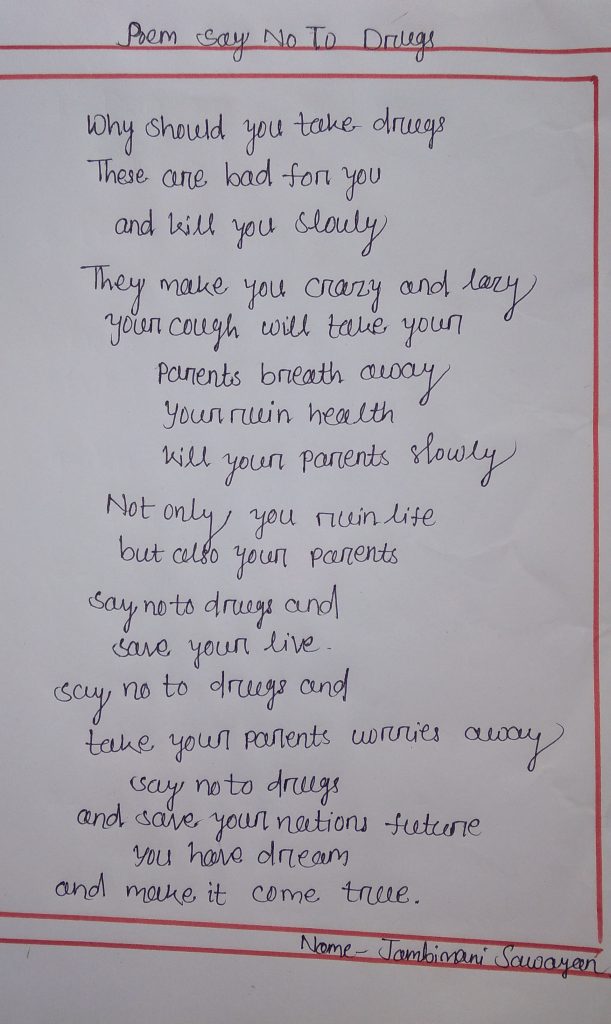 Poem Say No To Drugs
Why should you take drugs
These are bad for you
and kill you slowly
They make you crazy and lazy
your cough will take your
parents breath away
Your ruin health
kill your parents slowly
Not only you ruin life
but also your parents
say no to drugs and
save your live.
say no to drugs and
take your parents worries away
say no to drugs
and save your nations future
you have dream
and make it come true.
Name- Jambimani Sawayeen